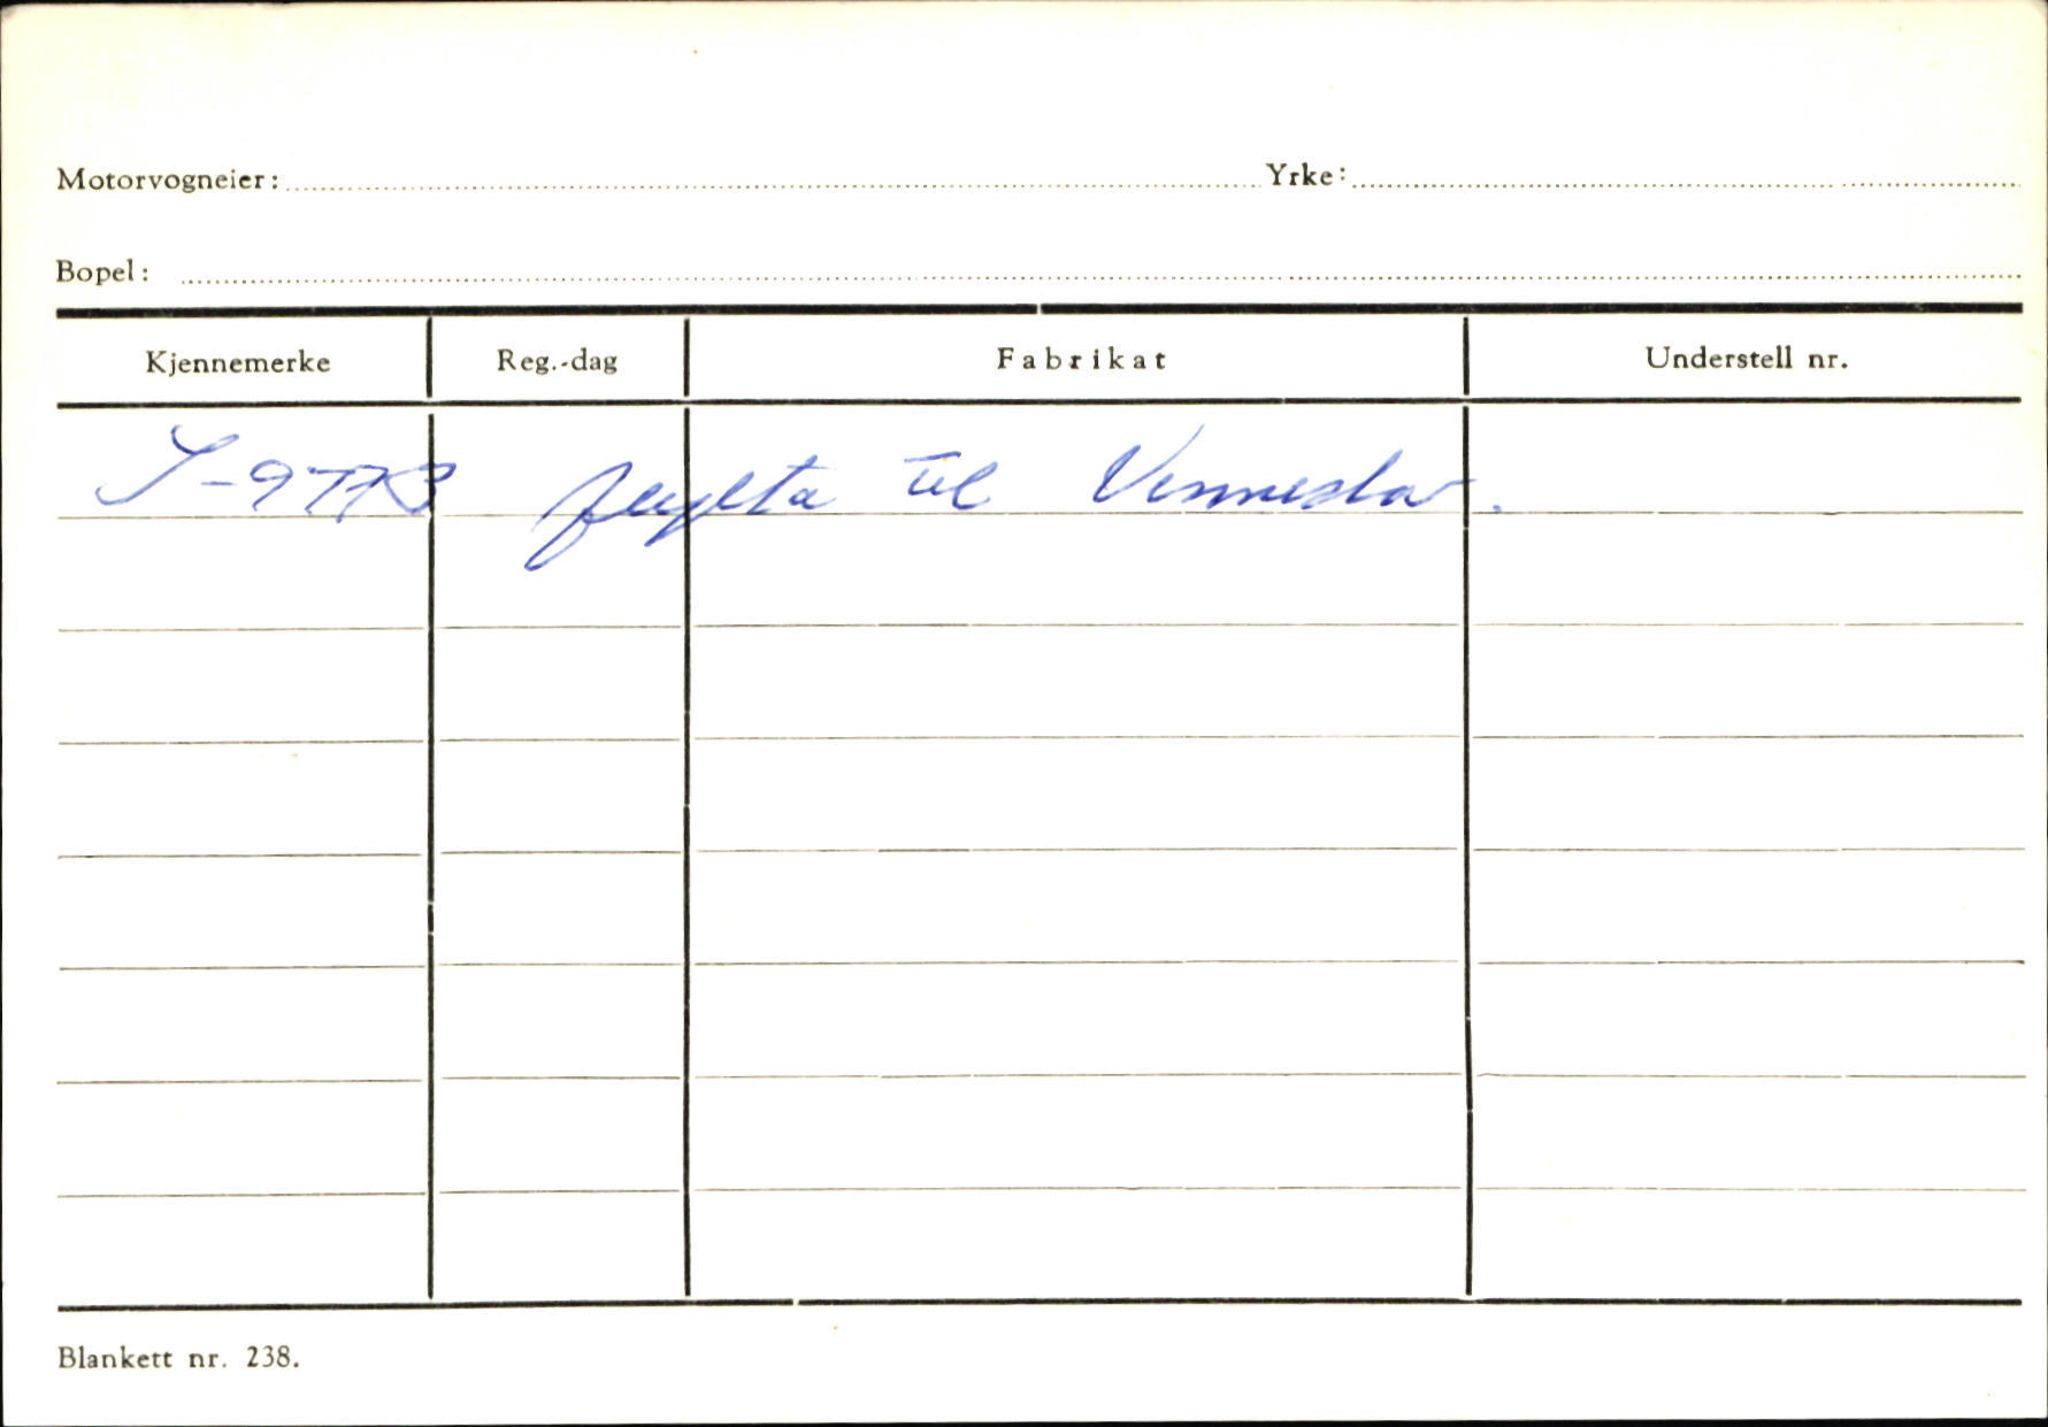 Motorvogneier: Yrke:
Bopel:
Kjennemerke Reg.-dag Fabrikat Understell nr.
S-9773 til Vennesla.
Blankett nr. 238.